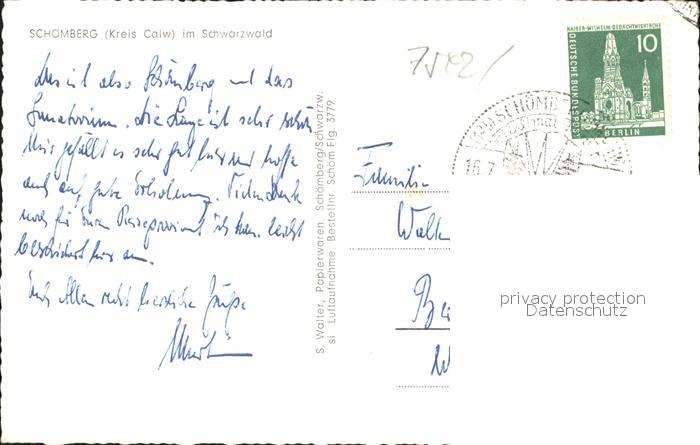 SCHÖMBERG (Kreis Calw) im Schwarzwald
Das ist also Schömberg und das
Sanatorium. Die Lage ist sehr schön
Mir gefällt es sehr gut hier und hoffe
auch auf gute Erholung. Vielen Dank
noch für Euren Reiseproviant ich kam leicht
beschwert hier an.
Euch Allen recht herzliche Grüße
S. Walter, Papierwaren, Schömberg/Schwarzw.
si Luftaufnahme. Bestellnr. Schöm Flg. 3779
7542/
KAISER-WILHELM-GEDÄCHTNISKIRCHE
10
DEUTSCHE BUNDESPOST
BERLIN
SCHÖMB
16.7
Familie
Walt
Ba
W
privacy protection
Datenschutz